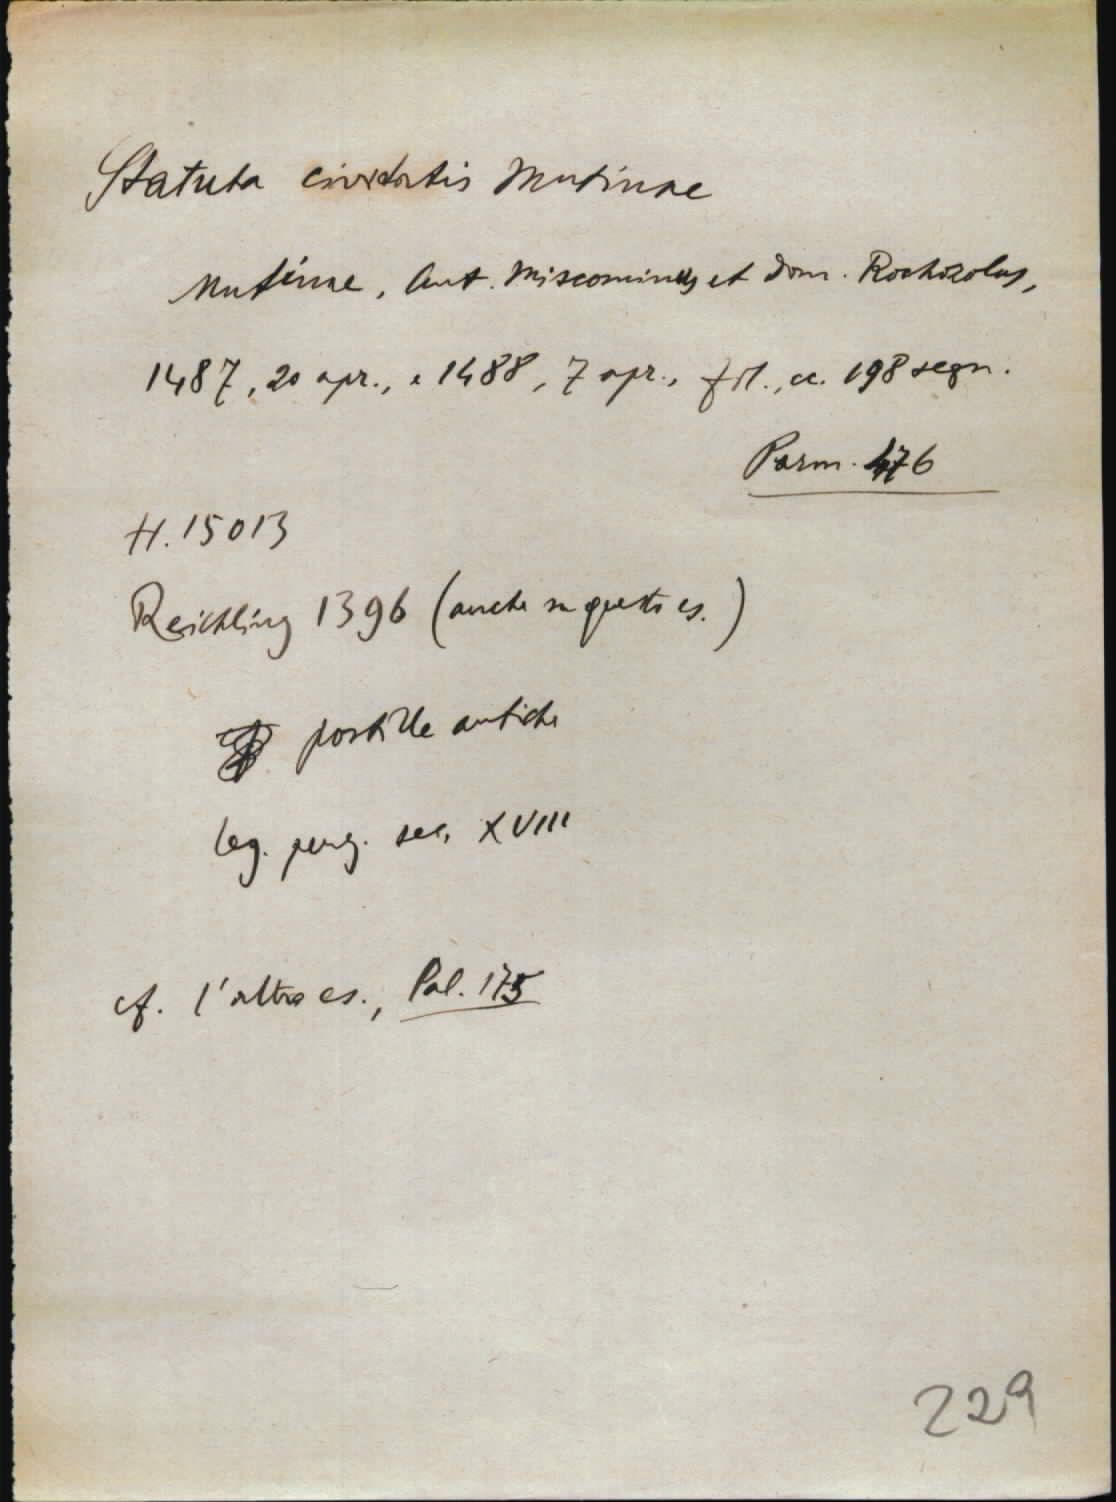 Statuta civitatis Mutinae
Mutinae, Ant. Miscominus et Dom. Rochozolus,
1487, 20 apr., e 1488, 7 apr., fol., cc. 198 segn.
Parm. 476
H. 15013
Reichling 1396 (anche su questo es.)
postille antiche
leg. perg. sec. XVIII
cf. l'altro es., Pal. 175
229